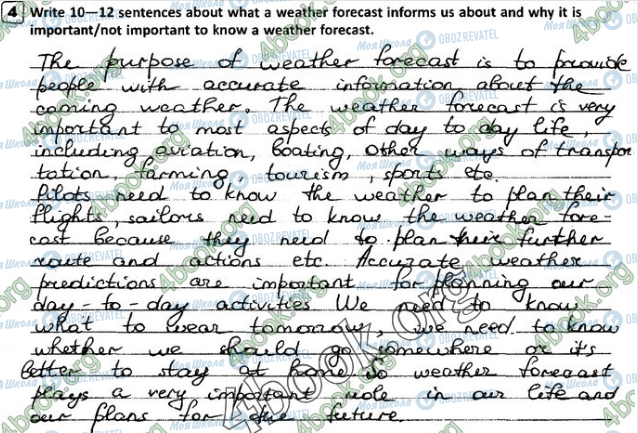 4 Write 10—12 sentences about what a weather forecast informs us about and why it is
important/not important to know a weather forecast.
The purpose of weather forecast is to provide
people with accurate information about the
coming weather. The weather forecast is very
important to most aspects of day to day life,
including aviation, boating, other ways of transpor
tation, farming, tourism, sports etc.
Pilots need to know the weather to plan their
flights, sailors need to know the weather fore-
cast because they need to plan their further
route and actions etc. Accurate weather
predictions are important for planning our
day-to-day activities We need to know
what to wear tomorrow, we need to know
whether we should go somewhere or it's
better to stay at home So weather forecast
plays a very important role in our life and
our plans for the future.